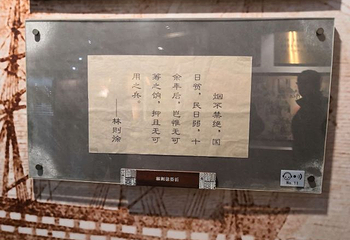 烟不禁绝，国
日贫，民日弱，十
余年后，岂惟无可
筹之饷，抑且无可
用之兵。
——林则徐